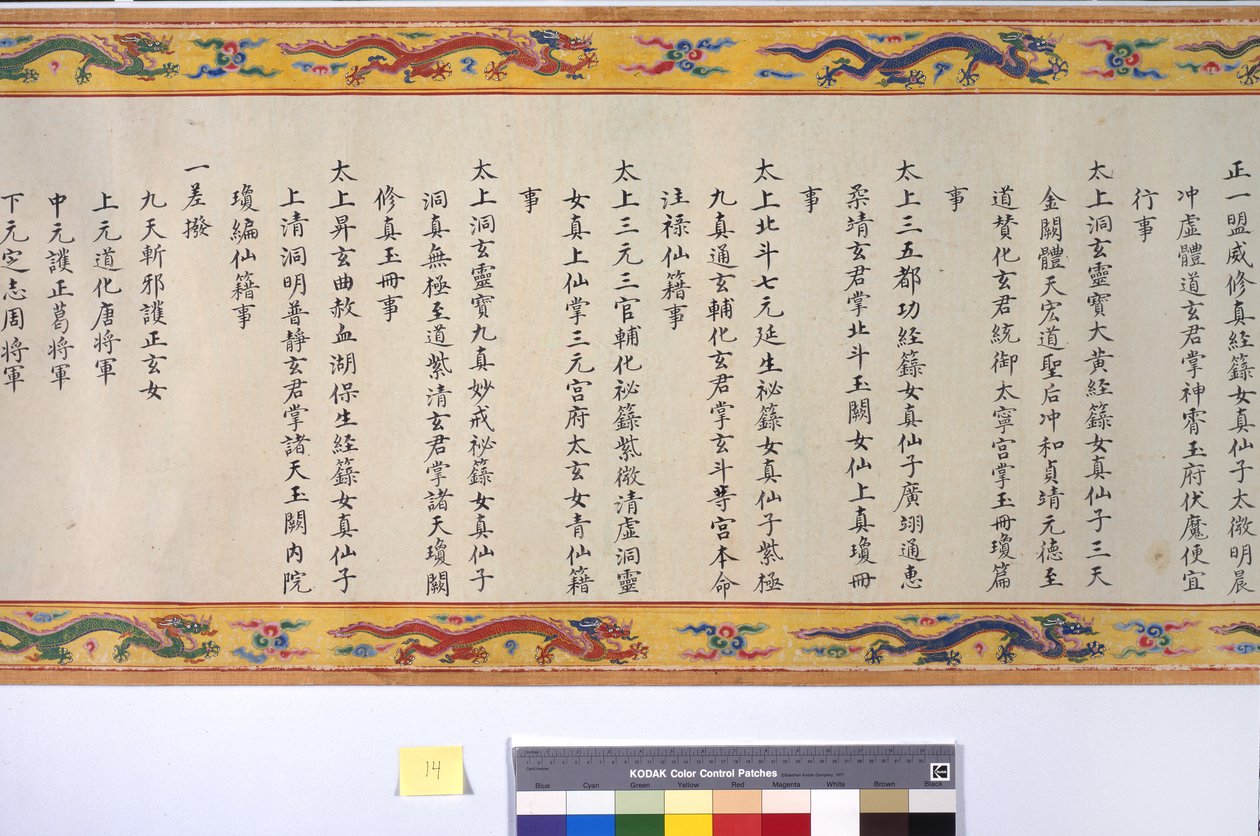 正一盟威修真經籙女真仙子太微明晨
冲虛體道玄君掌神霄玉府伏魔便宜
行事
太上洞玄靈寶大黃經籙女真仙子三天
金闕體天宏道聖后冲和貞靖元德至
道贊化玄君統御太寧宮掌玉冊瓊篇
事
太上三五都功經籙女真仙子廣翊通惠
柔靖玄君掌北斗玉闕女仙上真瓊冊
事
太上北斗七元延生祕籙女真仙子紫極
九真通玄輔化玄君掌玄斗等宮本命
注祿仙籍事
太上三元三官輔化祕籙紫微清虛洞靈
女真上仙掌三元宮府太玄女青仙籍
事
太上洞玄靈寶九真妙戒祕籙女真仙子
洞真無極至道紫清玄君掌諸天瓊闕
修真玉冊事
太上昇玄曲赦血湖保生經籙女真仙子
上清洞明普靜玄君掌諸天玉闕內院
瓊編仙籍事
一差撥
九天斬邪護正玄女
上元道化唐將軍
中元護正葛將軍
下元定志周將軍
14
KODAK Color Control Patches
©Eastman Kodak Company, 1977
Inches
Centimetres
Blue Cyan Green Yellow Red Magenta White Brown Black